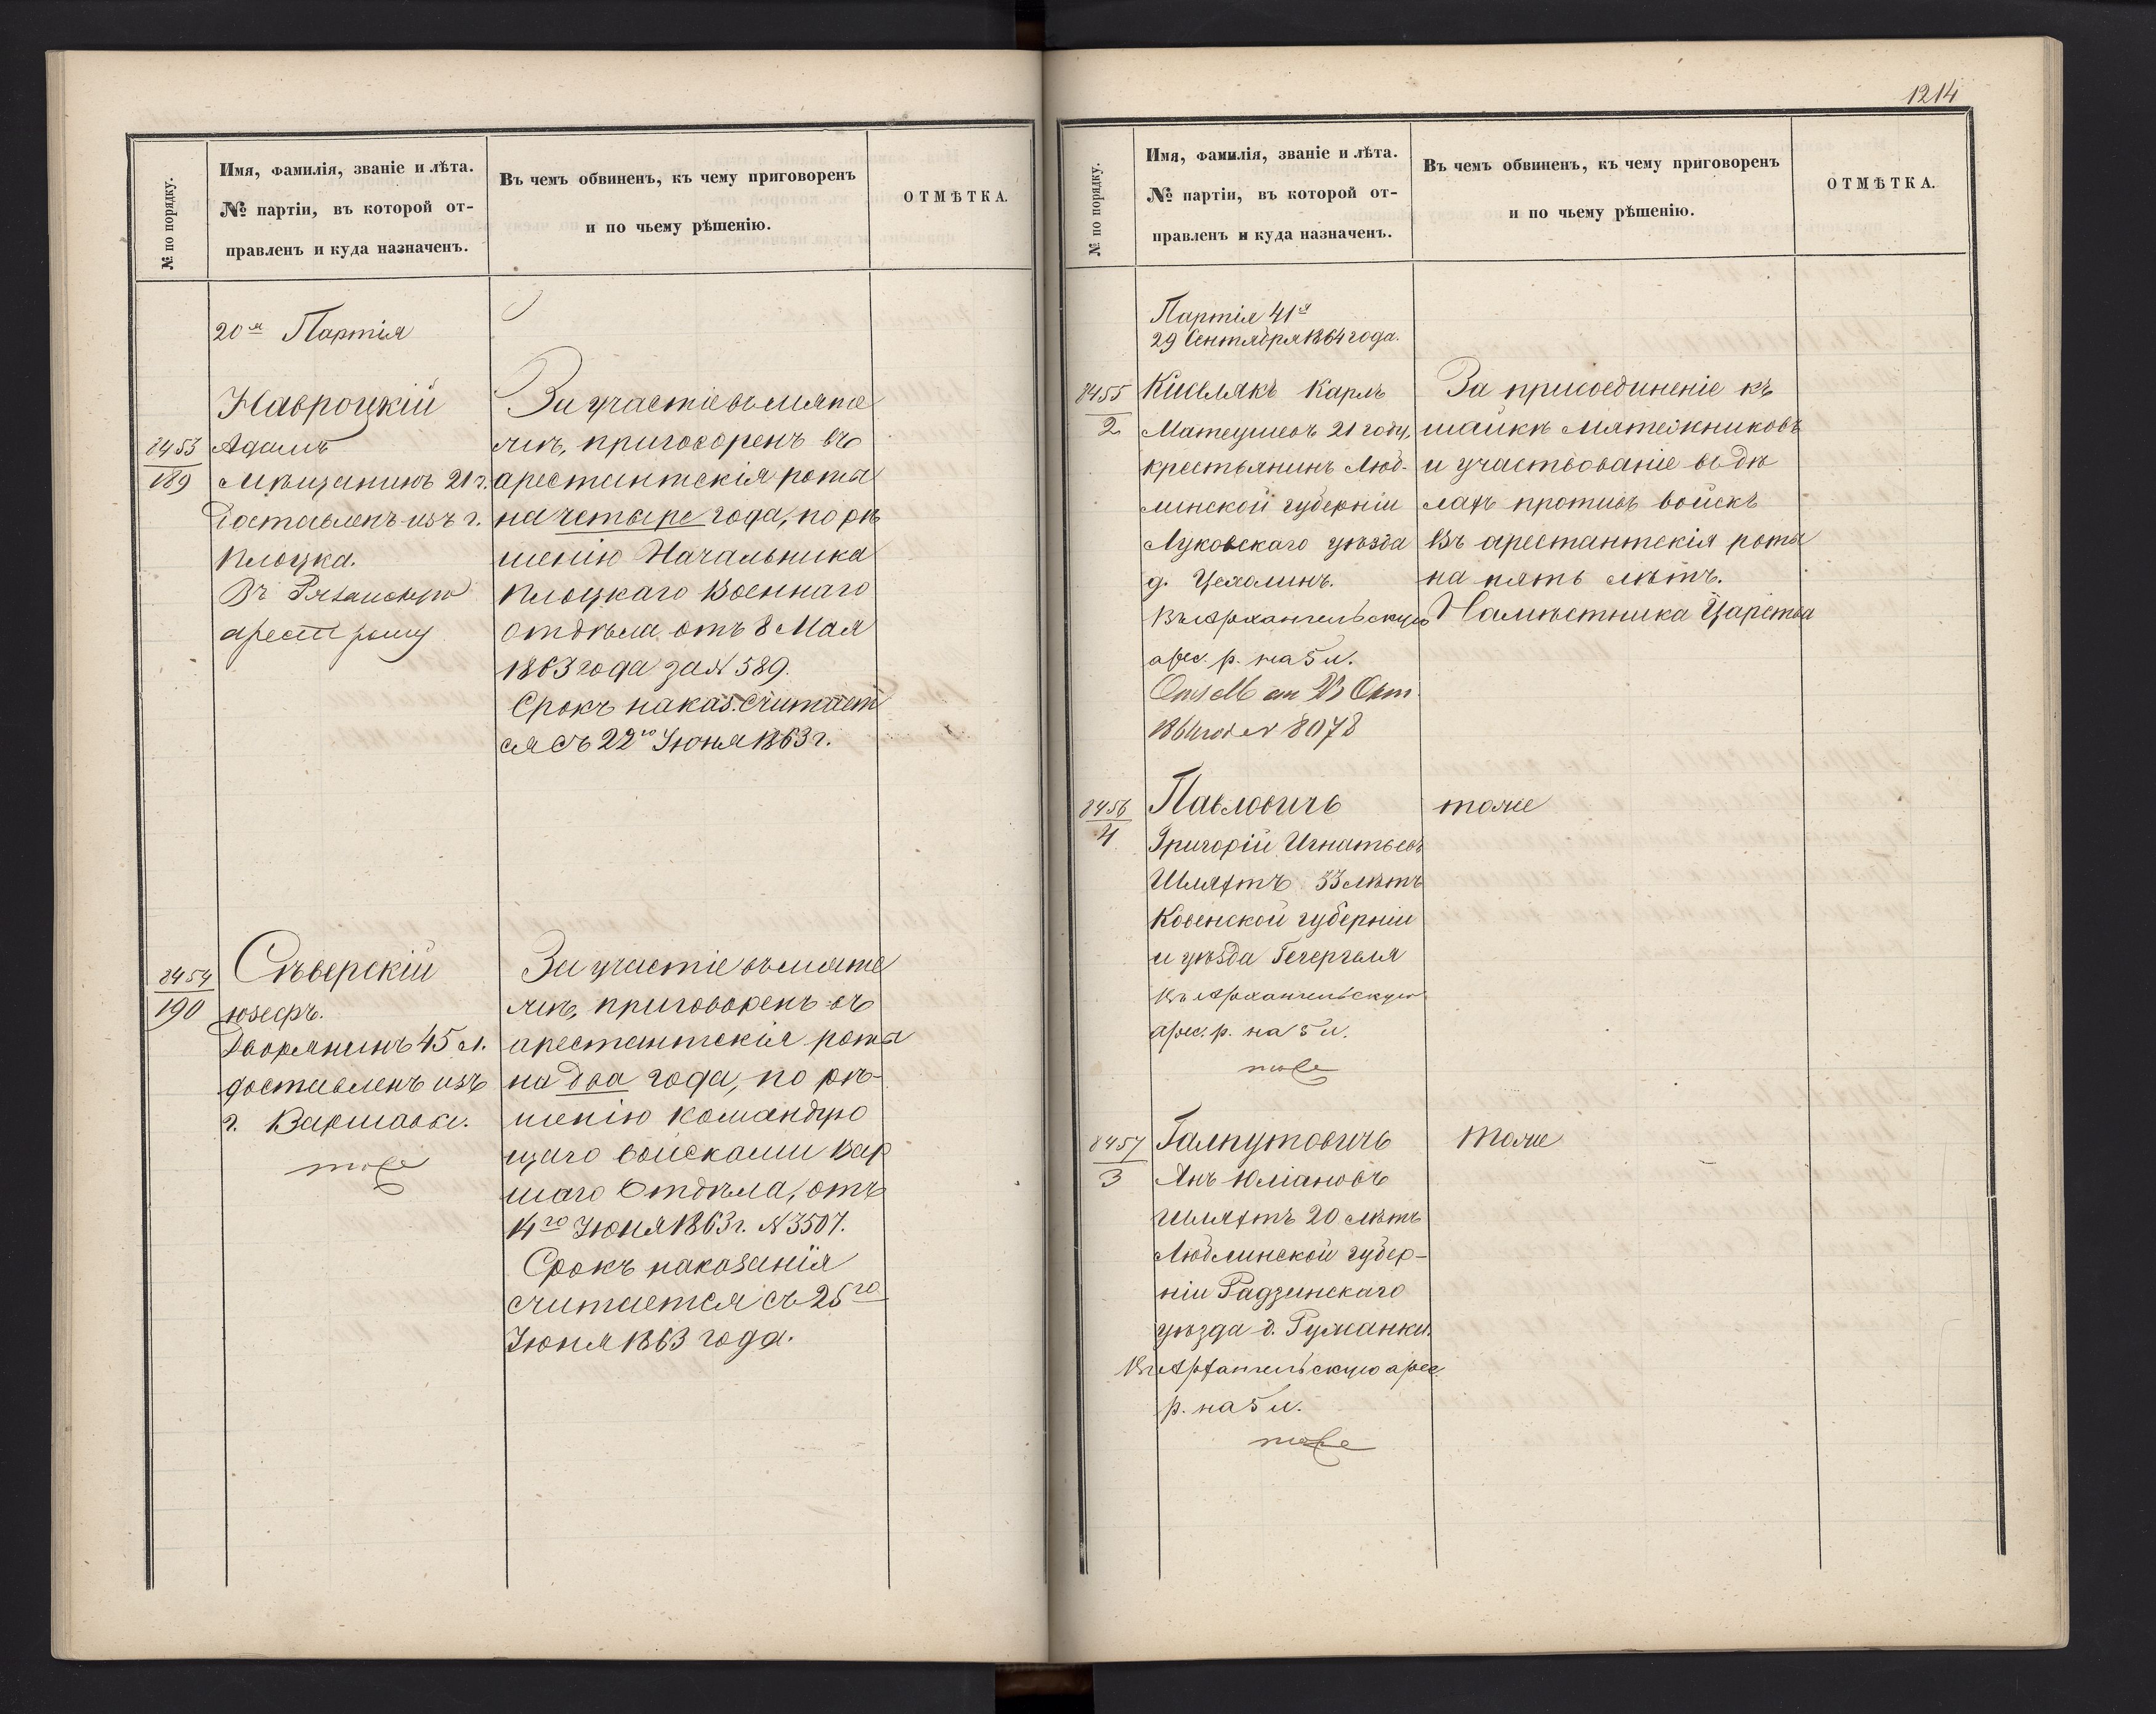 № по порядку.
Имя, фамилія, званіе и лѣта.
№ партіи, въ которой от-
правленъ и куда назначенъ.
Въ чемъ обвиненъ, къ чему приговоренъ
и по чьему рѣшенію.
ОТМѢТКА.
20я Партія
8453
189
Навроцкій
Адамъ
Мѣщанинъ 21 г.
Доставленъ изъ г.
Плоцка.
Въ Рязанскую
арест роту
За участіе въ мяте
жѣ, приговоренъ въ
арестантскія роты
на четыре года, по рѣ
шенію Начальника
Плоцкаго Военнаго
Отдѣла отъ 8 Мая
1863 года за N 589.
Срокъ наказ. считает
ся съ 22го Іюня 1863 г.
8454
190
Сѣверскій
Юзефъ.
Дворянинъ 45 л.
доставленъ изъ
г. Варшавы.
тоже
За участіе въ мяте
жѣ, приговоренъ въ
арестантскія роты
на два года, по рѣ-
шенію Командую
щаго войсками Вар
шаго Отдѣла, отъ
14го Іюня 1863 г. N 3507.
Срокъ наказанія
считается съ 25го
Іюня 1863 года.
1214
№ по порядку.
Имя, фамилія, званіе и лѣта.
№ партіи, въ которой от-
правленъ и куда назначенъ.
Въ чемъ обвиненъ, къ чему приговоренъ
и по чьему рѣшенію.
ОТМѢТКА.
Партія 41я
29 Сентября 1864 года.
8455
2
Киселякъ Карлъ
Матеушевъ 21 году,
крестьянинъ Люб-
линской губерніи
Луковскаго уѣзда
д. Цезолинъ.
Въ Архангельскую
арес. р. на 5 л.
Окт.
N 8078
За присоединеніе къ
шайкѣ мятежниковъ
и участвованіе въ дѣ
лахъ противъ войскъ
Въ арестантскія роты
на пять лѣтъ.
Намѣстника Царства
8456
4
Павловичъ
Григорій Игнатьевъ
Шляхтъ 33 лѣтъ
Ковенской губерніи
и уѣзда Гечергаля
Въ Архангельскую
арес. р. на 5 л.
тоже
тоже
8457
3
Галпутовичъ
Янъ Юліановъ
Шляхтъ 20 лѣтъ
Люблинской губер-
ніи Радзинскаго
уѣзда д. Гужанки.
Въ Архангельскую арес.
р. на 5 л.
тоже
тоже